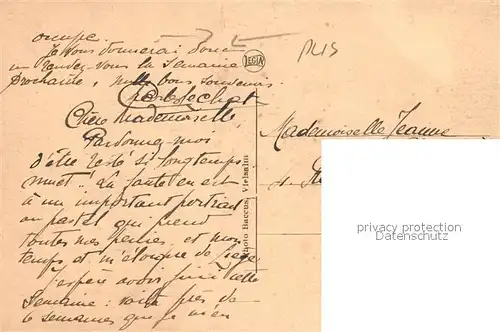 occupe.
Je vous donnerai donc
un rendez-vous la semaine
prochaine, mille bons souvenirs.
LEGIA
Chère Mademoiselle,
Pardonnez-moi
d'être resté si longtemps
muet! La faute en est
à un important portrait
au pastel qui prend
toutes mes peines et mon
temps et m'éloigne de Liège
J'espère avoir fini cette
semaine: voilà près de
6 semaines que je m'en
Photo Baccus, Vielsalm
Mademoiselle Jeanne
privacy protection
Datenschutz